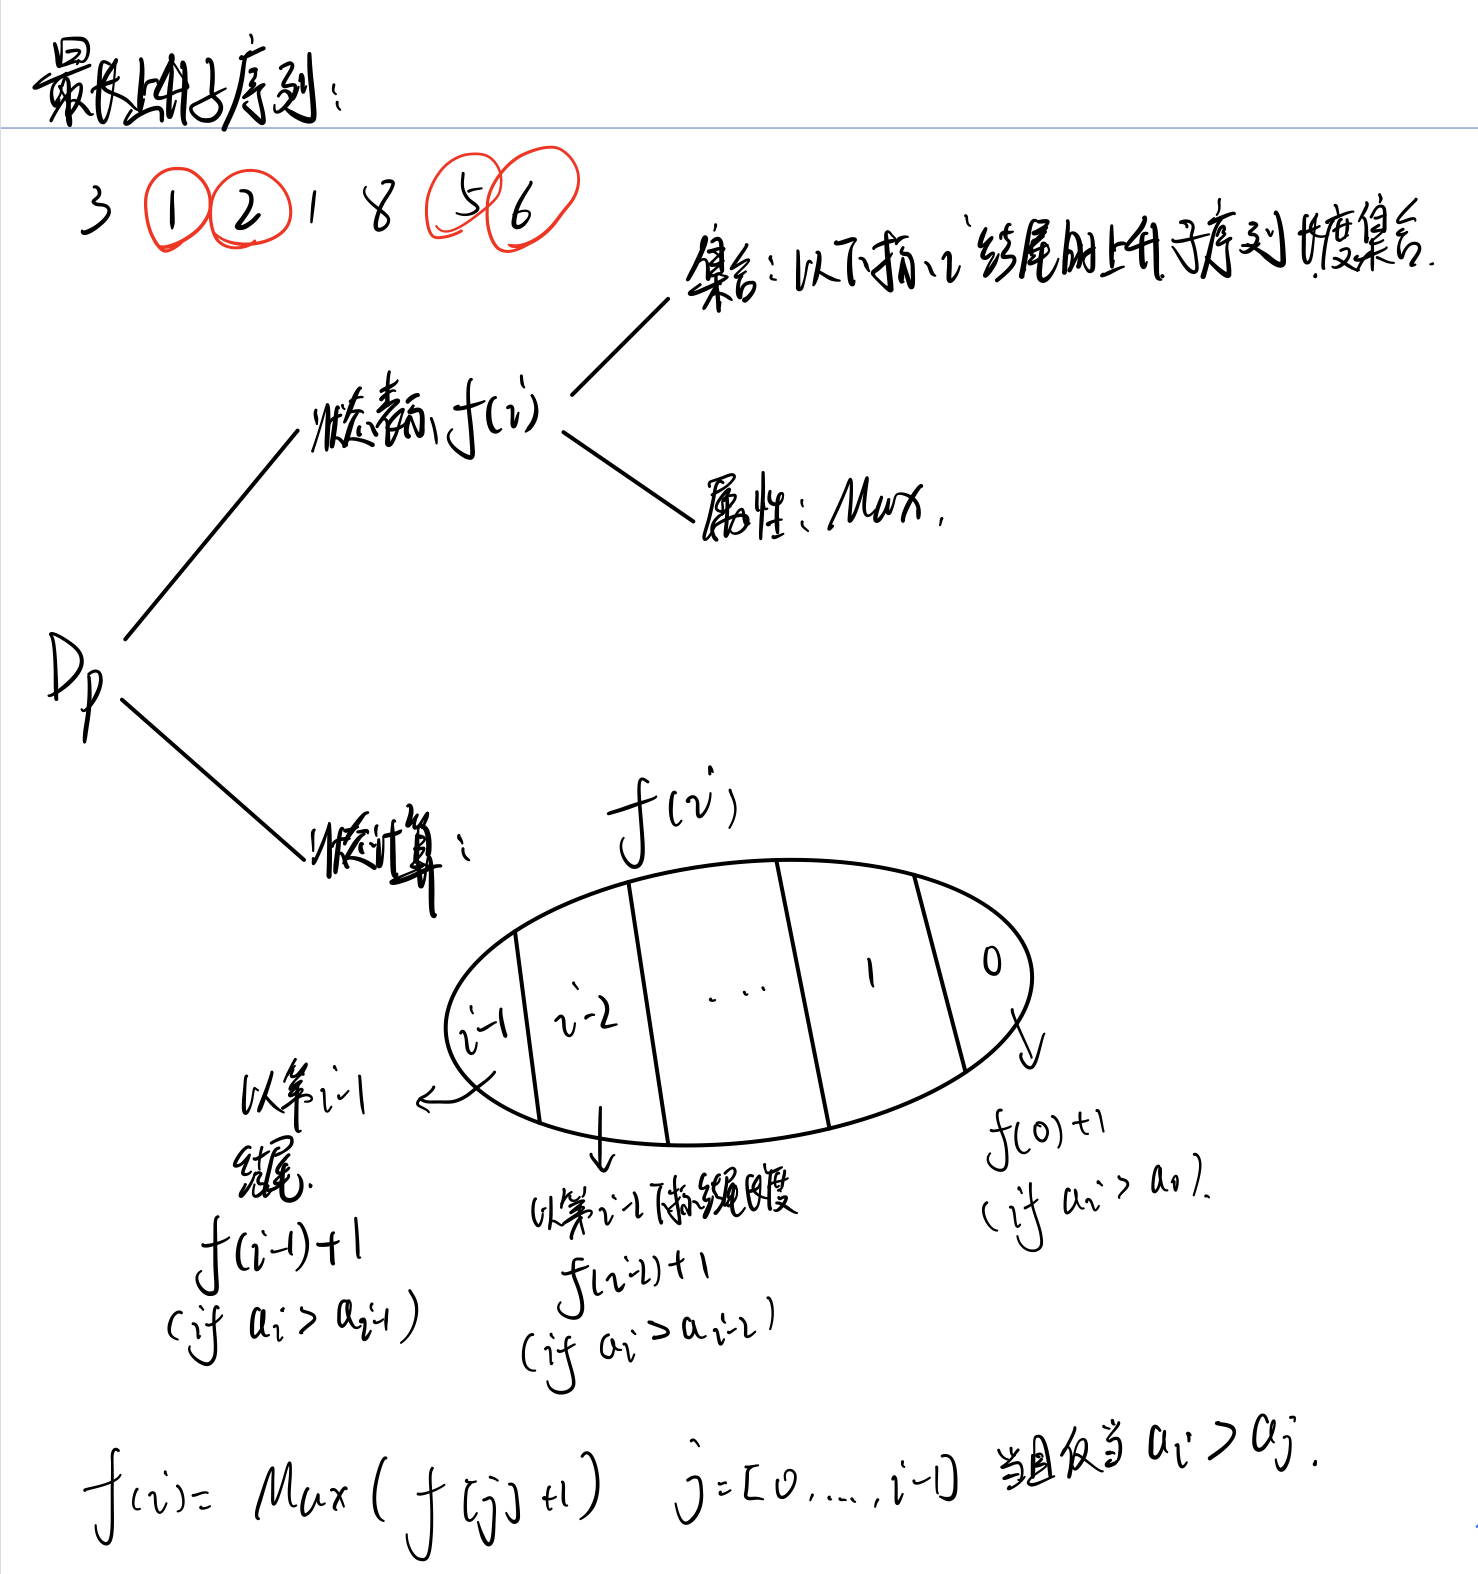 最长上升子序列：
3 1 2 1 8 5 6
集合：以下标i结尾的上升子序列长度集合.
状态表示f(i)
属性：Max.
Dp
状态计算：
f(i)
i-1 i-2 ... 1 0
以第i-1
结尾.
f(i-1)+1
(if ai > ai-1)
以第i-2下标结尾长度
f(i-2)+1
(if ai > ai-2)
f(0)+1
(if ai > a0).
f(i) = Max(f[j]+1) j=[0,...,i-1] 当且仅当 ai > aj.